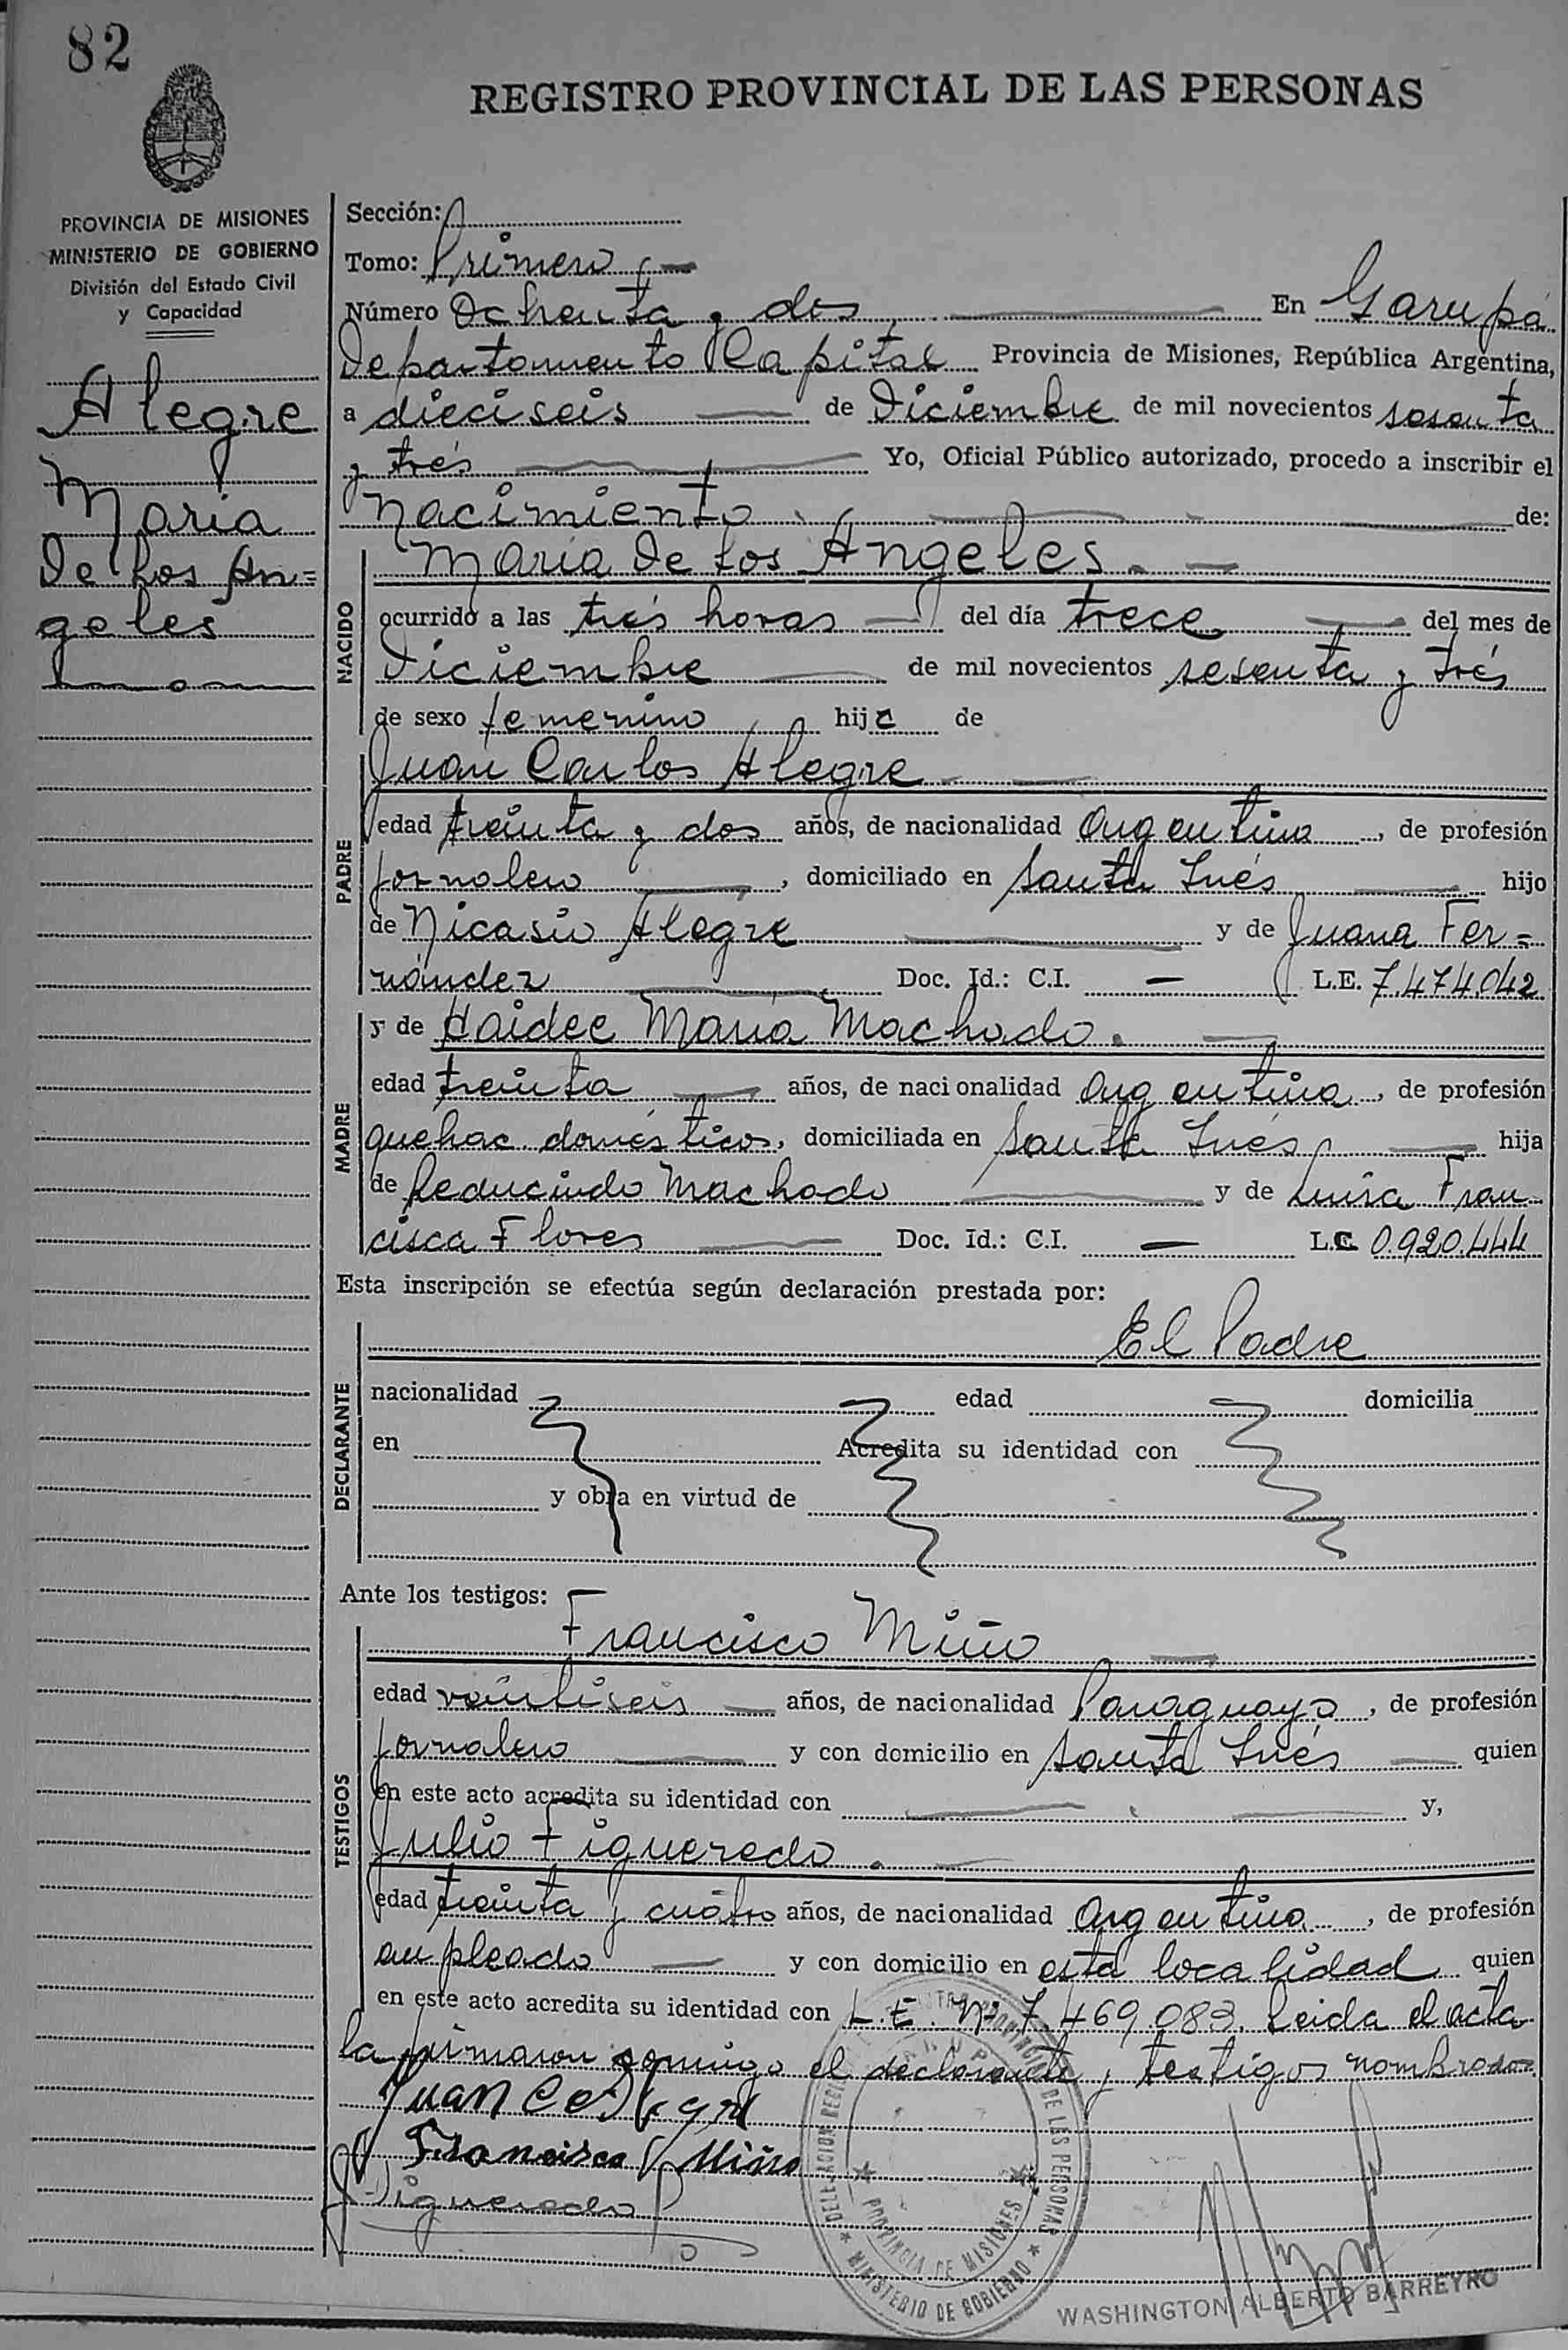 82
REGISTRO PROVINCIAL DE LAS PERSONAS
PROVINCIA DE MISIONES
MINISTERIO DE GOBIERNO
División del Estado Civil
y Capacidad
Alegre
Maria
De Los An=
geles
Sección:
Tomo: Primero
Número Ochenta y dos En Garupá
Departamento Capital Provincia de Misiones, República Argentina,
a dieciseis de Diciembre de mil novecientos sesenta
y trés Yo, Oficial Público autorizado, procedo a inscribir el
nacimiento de:
NACIDO
María De Los Angeles.
ocurrido a las trés horas del día trece del mes de
Diciembre de mil novecientos sesenta y trés
de sexo femenino hija de
PADRE
Juan Carlos Alegre
edad treinta y dos años, de nacionalidad Argentina, de profesión
jornalero, domiciliado en Santa Inés hijo
de Nicasio Alegre y de Juana Fer=
nández Doc. Id.: C.I. — L.E. 7.474.042
MADRE
y de Haidee María Machado.
edad treinta años, de nacionalidad Argentina, de profesión
quehac. domésticos, domiciliada en Santa Inés hija
de Reducindo Machado y de Luisa Fran
cisca Flores Doc. Id.: C.I. — L.C. 0.920.444
Esta inscripción se efectúa según declaración prestada por:
DECLARANTE
El Padre
nacionalidad edad domicilia
en Acredita su identidad con
y obra en virtud de
Ante los testigos:
TESTIGOS
Francisco Miño
edad veintiseis años, de nacionalidad Paraguaya, de profesión
jornalero y con domicilio en Santa Inés quien
en este acto acredita su identidad con y,
Julio Figueredo.
edad treinta y cuátro años, de nacionalidad Argentina, de profesión
empleado y con domicilio en esta localidad quien
en este acto acredita su identidad con L.E. Nº 7.469.083. Leida el acta
la firmaron conmigo el declarante y testigos nombrados
Juan
Francisco Miño
Figueredo
PROVINCIAL DE LAS PERSONAS
PROVINCIA DE MISIONES
MINISTERIO DE GOBIERNO
WASHINGTON ALBERTO BARREYRO